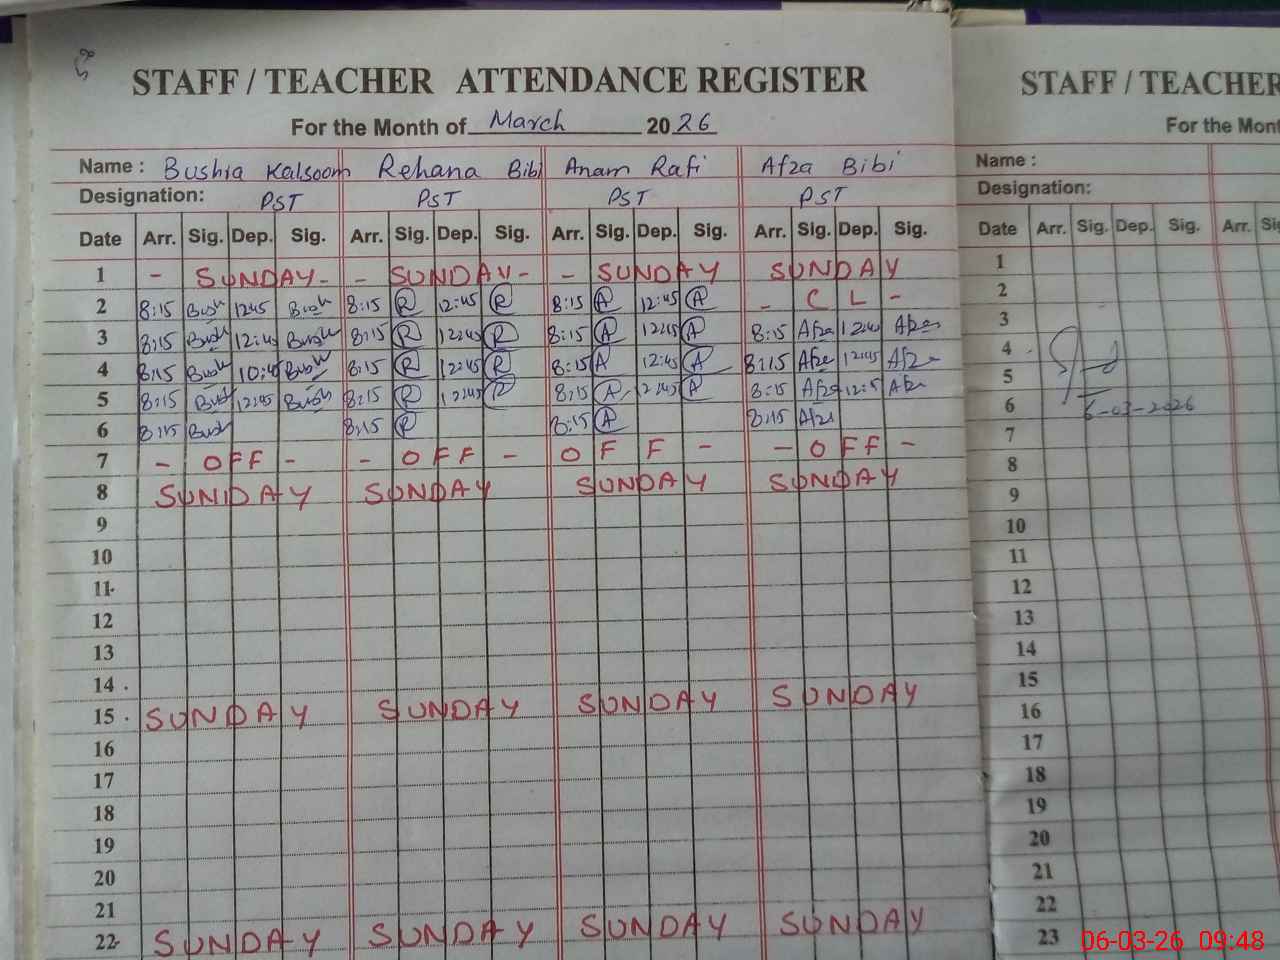 STAFF / TEACHER ATTENDANCE REGISTER
For the Month of March 2026
Name : Bushra Kalsoom Rehana Bibi Anam Rafi Afza Bibi
Designation: PST PST PST PST
Date Arr. Sig. Dep. Sig. Arr. Sig. Dep. Sig. Arr. Sig. Dep. Sig. Arr. Sig. Dep. Sig.
1 - SUNDAY - - SUNDAY - - SUNDAY SUNDAY
2 8:15 Bush 12:45 Bush 8:15 R 12:45 R 8:15 A 12:45 A - C L -
3 8:15 Bush 12:45 Bush 8:15 R 12:45 R 8:15 A 12:45 A 8:15 Afza 12:45 Afza
4 8:15 Bush 10:45 Bush 8:15 R 12:45 R 8:15 A 12:45 A 8:15 Afza 12:45 Afza
5 8:15 Bush 12:45 Bush 8:15 R 12:45 R 8:15 A 12:45 A 8:15 Afza 12:5 Afza
6 8:15 Bush 8:15 R 8:15 A 8:15 Afza
7 - OFF - - OFF - OFF - - OFF -
8 SUNDAY SUNDAY SUNDAY SUNDAY
9
10
11
12
13
14
15 SUNDAY SUNDAY SUNDAY SUNDAY
16
17
18
19
20
21
22 SUNDAY SUNDAY SUNDAY SUNDAY
STAFF / TEACHER
For the Mont
Name :
Designation:
Date Arr. Sig. Dep. Sig. Arr.
1
2
3
4
5
6 6-03-2026
7
8
9
10
11
12
13
14
15
16
17
18
19
20
21
22
23
06-03-26 09:48